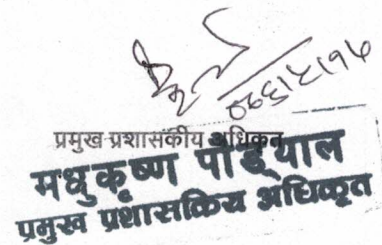 प्रमुख प्रशासकीय अधिकृत
मधुकृष्ण पौड्याल
प्रमुख प्रशासकिय अधिकृत